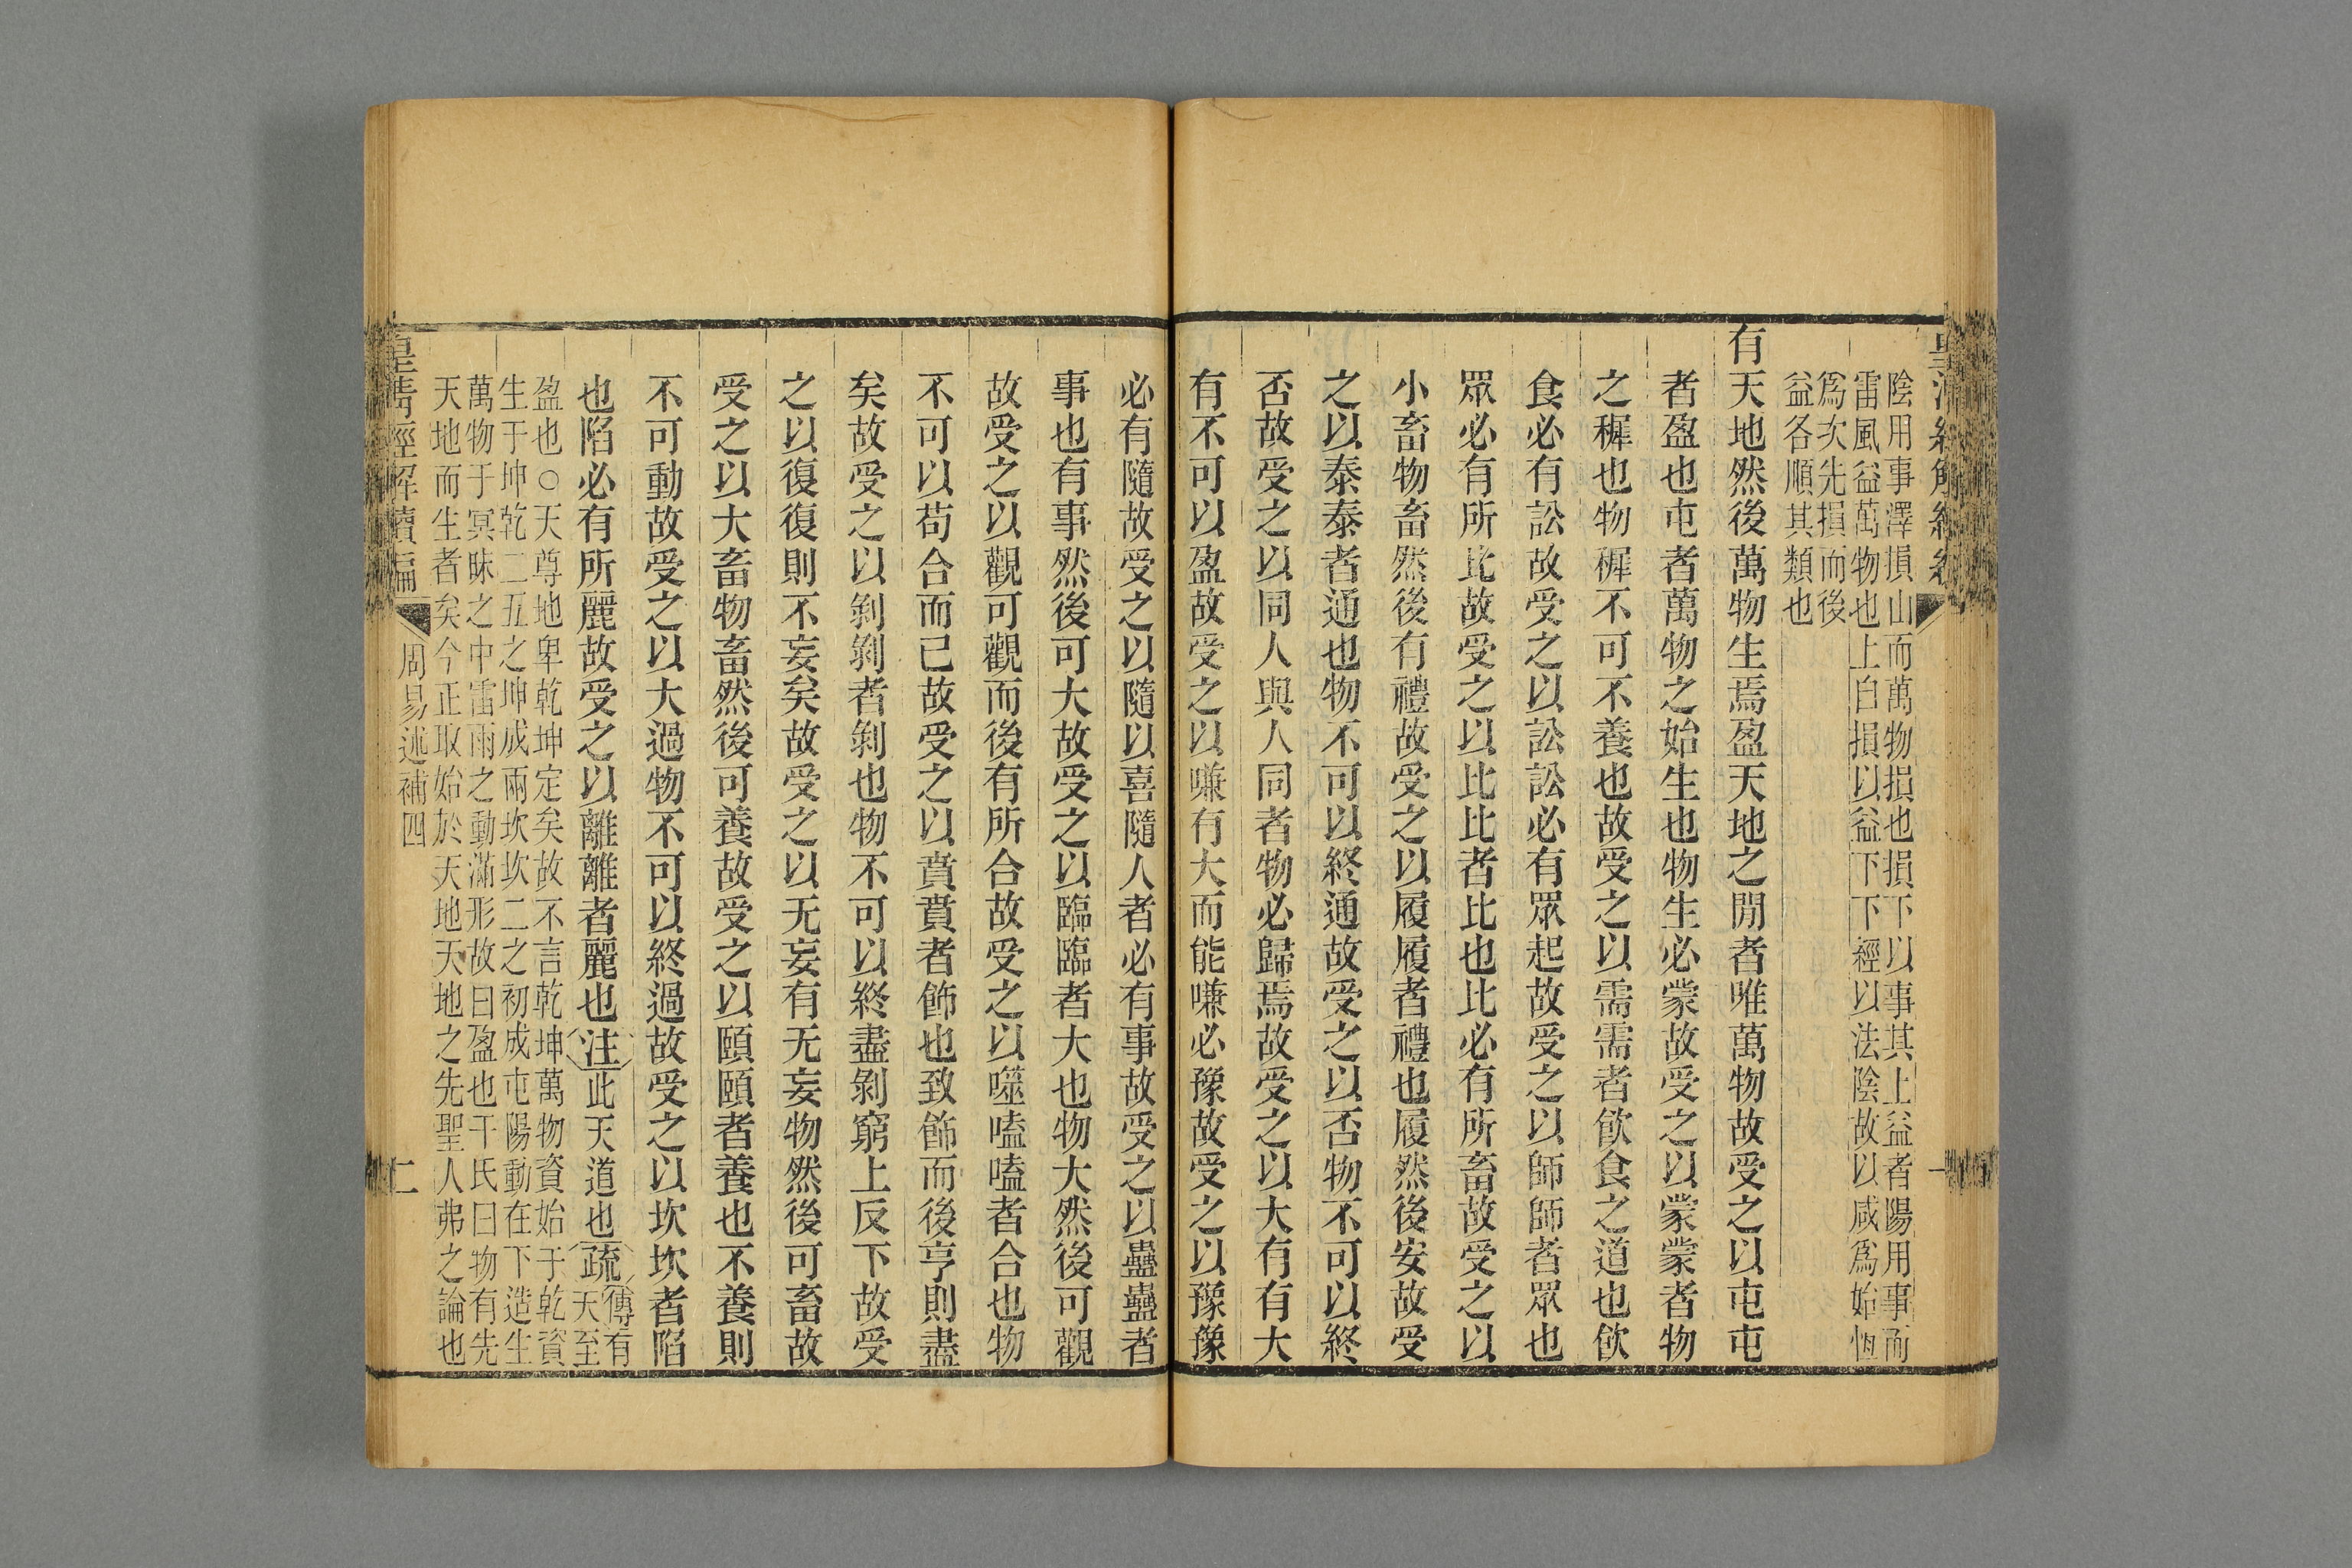 陰用事澤損山而萬物損也損下以事其上益者陽用事而
雷風益萬物也上自損以益下下經以法陰故以咸爲始恆
爲次先損而後
益各順其類也
有天地然後萬物生焉盈天地之閒者唯萬物故受之以屯屯
者盈也屯者萬物之始生也物生必蒙故受之以蒙蒙者物
之穉也物穉不可不養也故受之以需需者飲食之道也飲
食必有訟故受之以訟訟必有眾起故受之以師師者眾也
眾必有所比故受之以比比者比也比必有所畜故受之以
小畜物畜然後有禮故受之以履履者禮也履然後安故受
之以泰泰者通也物不可以終通故受之以否物不可以終
否故受之以同人與人同者物必歸焉故受之以大有有大
有不可以盈故受之以嗛有大而能嗛必豫故受之以豫豫
必有隨故受之以隨以喜隨人者必有事故受之以蠱蠱者
事也有事然後可大故受之以臨臨者大也物大然後可觀
故受之以觀可觀而後有所合故受之以噬嗑嗑者合也物
不可以苟合而已故受之以賁賁者飾也致飾而後亨則盡
矣故受之以剝剝者剝也物不可以終盡剝窮上反下故受
之以復復則不妄矣故受之以无妄有无妄物然後可畜故
受之以大畜物畜然後可養故受之以頤頤者養也不養則
不可動故受之以大過物不可以終過故受之以坎坎者陷
也陷必有所麗故受之以離離者麗也注此天道也疏傳有
天至
盈也○天尊地卑乾坤定矣故不言乾坤萬物資始于乾資
生于坤乾二五之坤成兩坎坎二之初成屯陽動在下造生
萬物于冥昧之中雷雨之動滿形故曰盈也干氏曰物有先
天地而生者矣今正取始於天地天地之先聖人弗之論也
皇清經解續編
周易述補四
二